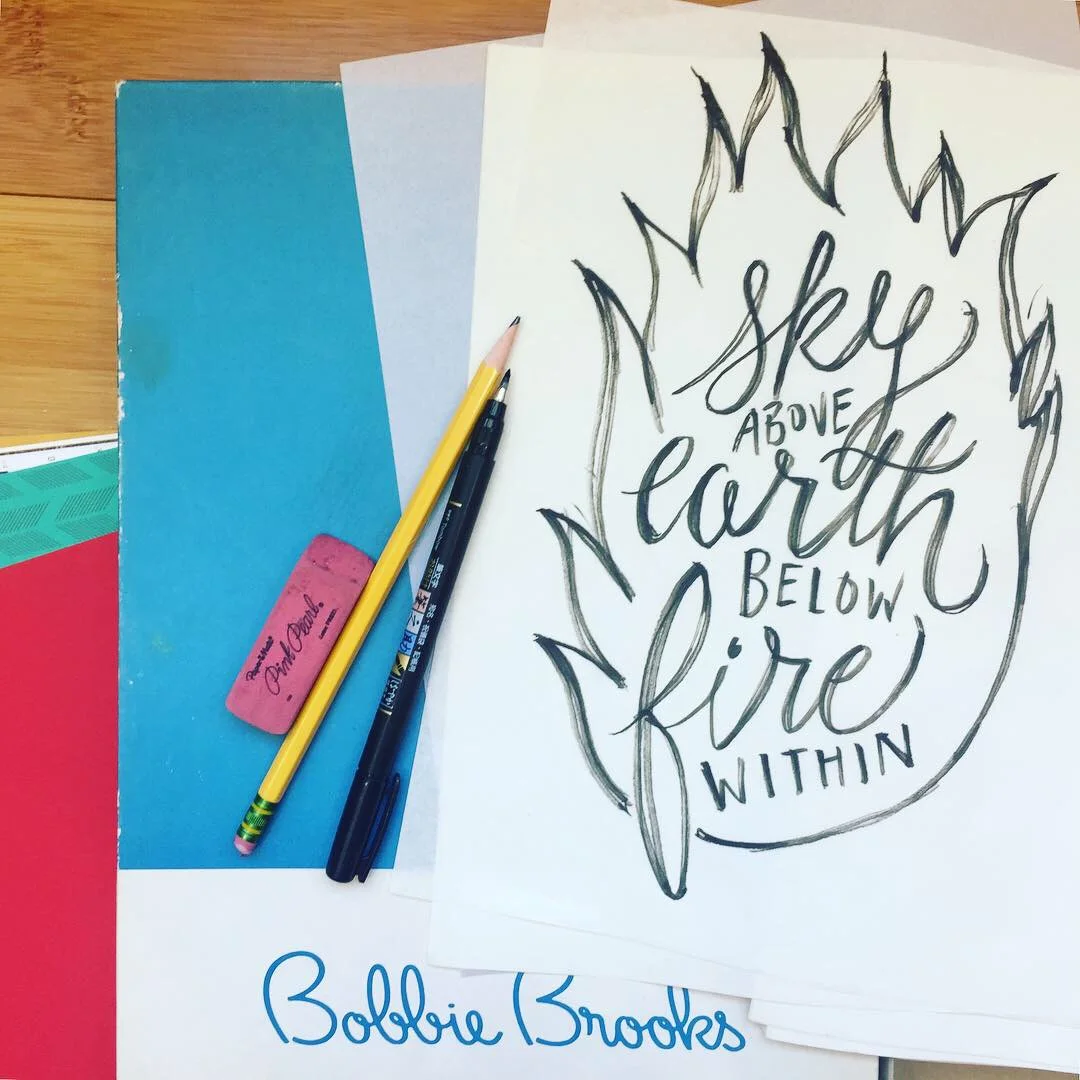 sky
ABOVE
earth
BELOW
fire
WITHIN
Paper Mate
Pink Pearl
Bobbie Brooks